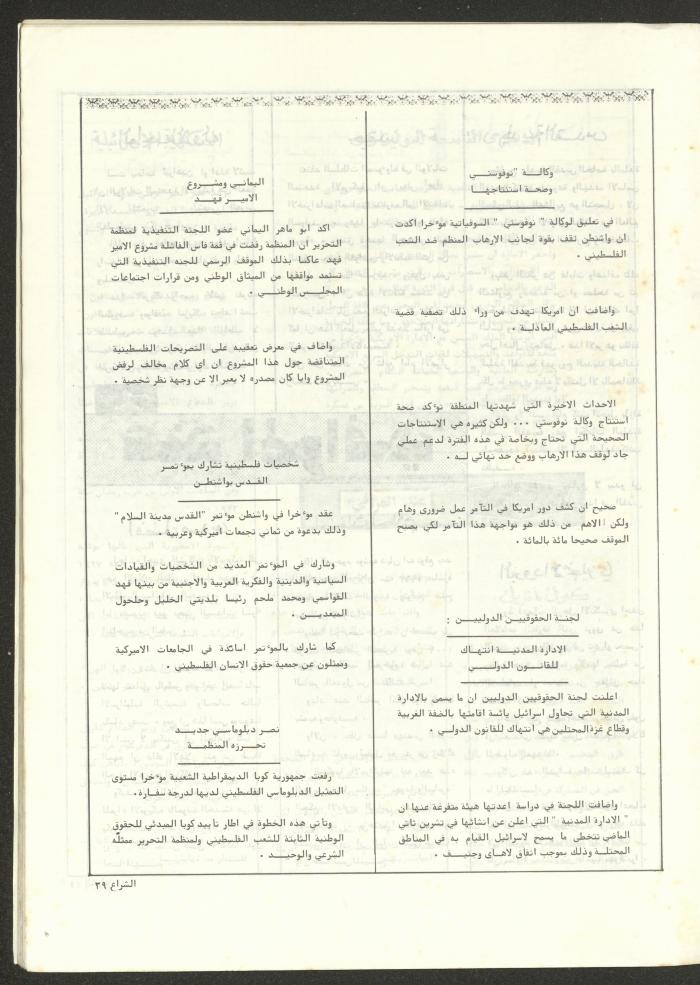 وكالة "نوفوستي
وصحة استنتاجها
في تعليق لوكالة " نوفوستي " السوفياتية مؤخرا اكدت
ان واشنطن تقف بقوة لجانب الارهاب المنظم ضد الشعب
الفلسطيني .
واضافت ان امريكا تهدف من وراء ذلك تصفية قضية
الشعب الفلسطيني العادلة .
الاحداث الاخيرة التي شهدتها المنطقة تؤكد صحة
استنتاج وكالة نوفوستي ... ولكن كثيره هي الاستنتاجات
الصحيحة التي تحتاج وبخاصة في هذه الفترة لدعم عملي
جاد لوقف هذا الارهاب ووضع حد نهائي له .
صحيح ان كشف دور امريكا في التآمر عمل ضروري وهام
ولكن الاهم من ذلك هو مواجهة هذا التآمر لكي يصبح
الموقف صحيحا مائة بالمائة .
لجنة الحقوقيين الدوليين :
الادارة المدنية انتهاك
للقانون الدولي
اعلنت لجنة الحقوقيين الدوليين ان ما يسمى بالادارة
المدنية التي تحاول اسرائيل يائسة اقامتها بالضفة الغربية
وقطاع غزة المحتلين هي انتهاك للقانون الدولي .
واضافت اللجنة في دراسة اعدتها هيئة متفرغة عنها ان
" الادارة المدنية " التي اعلن عن انشائها في تشرين ثاني
الماضي تتخطى ما يسمح لاسرائيل القيام به في المناطق
المحتلة وذلك بموجب اتفاق لاهاي وجنيف .
اليماني ومشروع
الامير فهد
اكد ابو ماهر اليماني عضو اللجنة التنفيذية لمنظمة
التحرير ان المنظمة رفضت في قمة فاس الفاشلة مشروع الامير
فهد عاكسا بذلك الموقف الرسمي للجنة التنفيذية التي
تستمد مواقفها من الميثاق الوطني ومن قرارات اجتماعات
المجلس الوطني .
واضاف في معرض تعقيبه على التصريحات الفلسطينية
المتناقضة حول هذا المشروع ان اي كلام مخالف لرفض
المشروع وايا كان مصدره لا يعبر الا عن وجهة نظر شخصية .
شخصيات فلسطينية تشارك بمؤتمر
القدس بواشنطن
عقد مؤخرا في واشنطن مؤتمر "القدس مدينة السلام"
وذلك بدعوة من ثماني تجمعات اميركية وغربية .
وشارك في المؤتمر العديد من الشخصيات والقيادات
السياسية والدينية والفكرية العربية والاجنبية من بينها فهد
القواسمي ومحمد ملحم رئيسا بلديتي الخليل وحلحول
المبعدين .
كما شارك بالمؤتمر اساتذة في الجامعات الاميركية
وممثلون عن جمعية حقوق الانسان الفلسطيني .
نصر دبلوماسي جديد
تحرزه المنظمة
رفعت جمهورية كوبا الديمقراطية الشعبية مؤخرا مستوى
التمثيل الدبلوماسي الفلسطيني لديها لدرجة سفارة .
وتأتي هذه الخطوة في اطار تأييد كوبا المبدئي للحقوق
الوطنية الثابتة للشعب الفلسطيني ولمنظمة التحرير ممثله
الشرعي والوحيد .
الشراع ٣٩